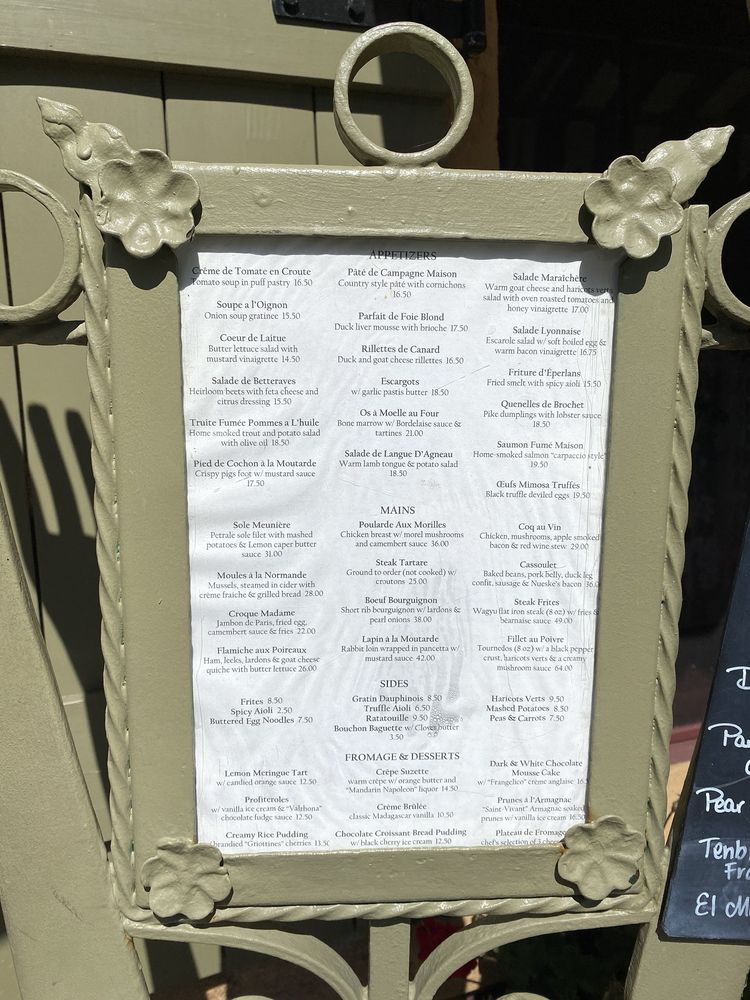 APPETIZERS
Crême de Tomate en Croute
Tomato soup in puff pastry 16.50
Soupe a l'Oignon
Onion soup gratinee 15.50
Coeur de Laitue
Butter lettuce salad with
mustard vinaigrette 14.50
Salade de Betteraves
Heirloom beets with feta cheese and
citrus dressing 15.50
Truite Fumée Pommes a L'huile
Home smoked trout and potato salad
with olive oil 18.50
Pied de Cochon à la Moutarde
Crispy pigs foot w/ mustard sauce
17.50
Pâté de Campagne Maison
Country style pâté with cornichons
16.50
Parfait de Foie Blond
Duck liver mousse with brioche 17.50
Rillettes de Canard
Duck and goat cheese rillettes 16.50
Escargots
w/ garlic pastis butter 18.50
Os à Moelle au Four
Bone marrow w/ Bordelaise sauce &
tartines 21.00
Salade de Langue D'Agneau
Warm lamb tongue & potato salad
18.50
Salade Maraîchère
Warm goat cheese and haricots verts
salad with oven roasted tomatoes and
honey vinaigrette 17.00
Salade Lyonnaise
Escarole salad w/ soft boiled egg &
warm bacon vinaigrette 16.75
Friture d'Éperlans
Fried smelt with spicy aioli 15.50
Quenelles de Brochet
Pike dumplings with lobster sauce
18.50
Saumon Fumé Maison
Home-smoked salmon "carpaccio style"
19.50
Œufs Mimosa Truffés
Black truffle deviled eggs 19.50
MAINS
Sole Meunière
Petrale sole filet with mashed
potatoes & Lemon caper butter
sauce 31.00
Moules à la Normande
Mussels, steamed in cider with
crème fraiche & grilled bread 28.00
Croque Madame
Jambon de Paris, fried egg,
camembert sauce & fries 22.00
Flamiche aux Poireaux
Ham, leeks, lardons & goat cheese
quiche with butter lettuce 26.00
Poularde Aux Morilles
Chicken breast w/ morel mushrooms
and camembert sauce 36.00
Steak Tartare
Ground to order (not cooked) w/
croutons 25.00
Boeuf Bourguignon
Short rib bourguignon w/ lardons &
pearl onions 38.00
Lapin à la Moutarde
Rabbit loin wrapped in pancetta w/
mustard sauce 42.00
Coq au Vin
Chicken, mushrooms, apple smoked
bacon & red wine stew 29.00
Cassoulet
Baked beans, pork belly, duck leg
confit, sausage & Nueske's bacon 36.0
Steak Frites
Wagyu flat iron steak (8 oz) w/ fries &
béarnaise sauce 49.00
Fillet au Poivre
Tournedos (8 oz) w/ a black pepper
crust, haricots verts & a creamy
mushroom sauce 64.00
SIDES
Frites 8.50
Spicy Aioli 2.50
Buttered Egg Noodles 7.50
Gratin Dauphinois 8.50
Truffle Aioli 6.50
Ratatouille 9.50
Bouchon Baguette w/ Clover butter
3.50
Haricots Verts 9.50
Mashed Potatoes 8.50
Peas & Carrots 7.50
FROMAGE & DESSERTS
Lemon Meringue Tart
w/ candied orange sauce 12.50
Profiteroles
w/ vanilla ice cream & "Valrhona"
chocolate fudge sauce 12.50
Creamy Rice Pudding
brandied "Griottines" cherries 13.50
Crêpe Suzette
warm crêpe w/ orange butter and
"Mandarin Napoleon" liquor 14.50
Crème Brûlée
classic Madagascar vanilla 10.50
Chocolate Croissant Bread Pudding
w/ black cherry ice cream 12.50
Dark & White Chocolate
Mousse Cake
w/ "Frangelico" crème anglaise 16.
Prunes à l'Armagnac
"Saint-Vivant" Armagnac soaked
prunes w/ vanilla ice cream 16.5
Plateau de Fromage
chef's selection of 3 chee
D
Pa
Pear
Tenb
Fro
El M